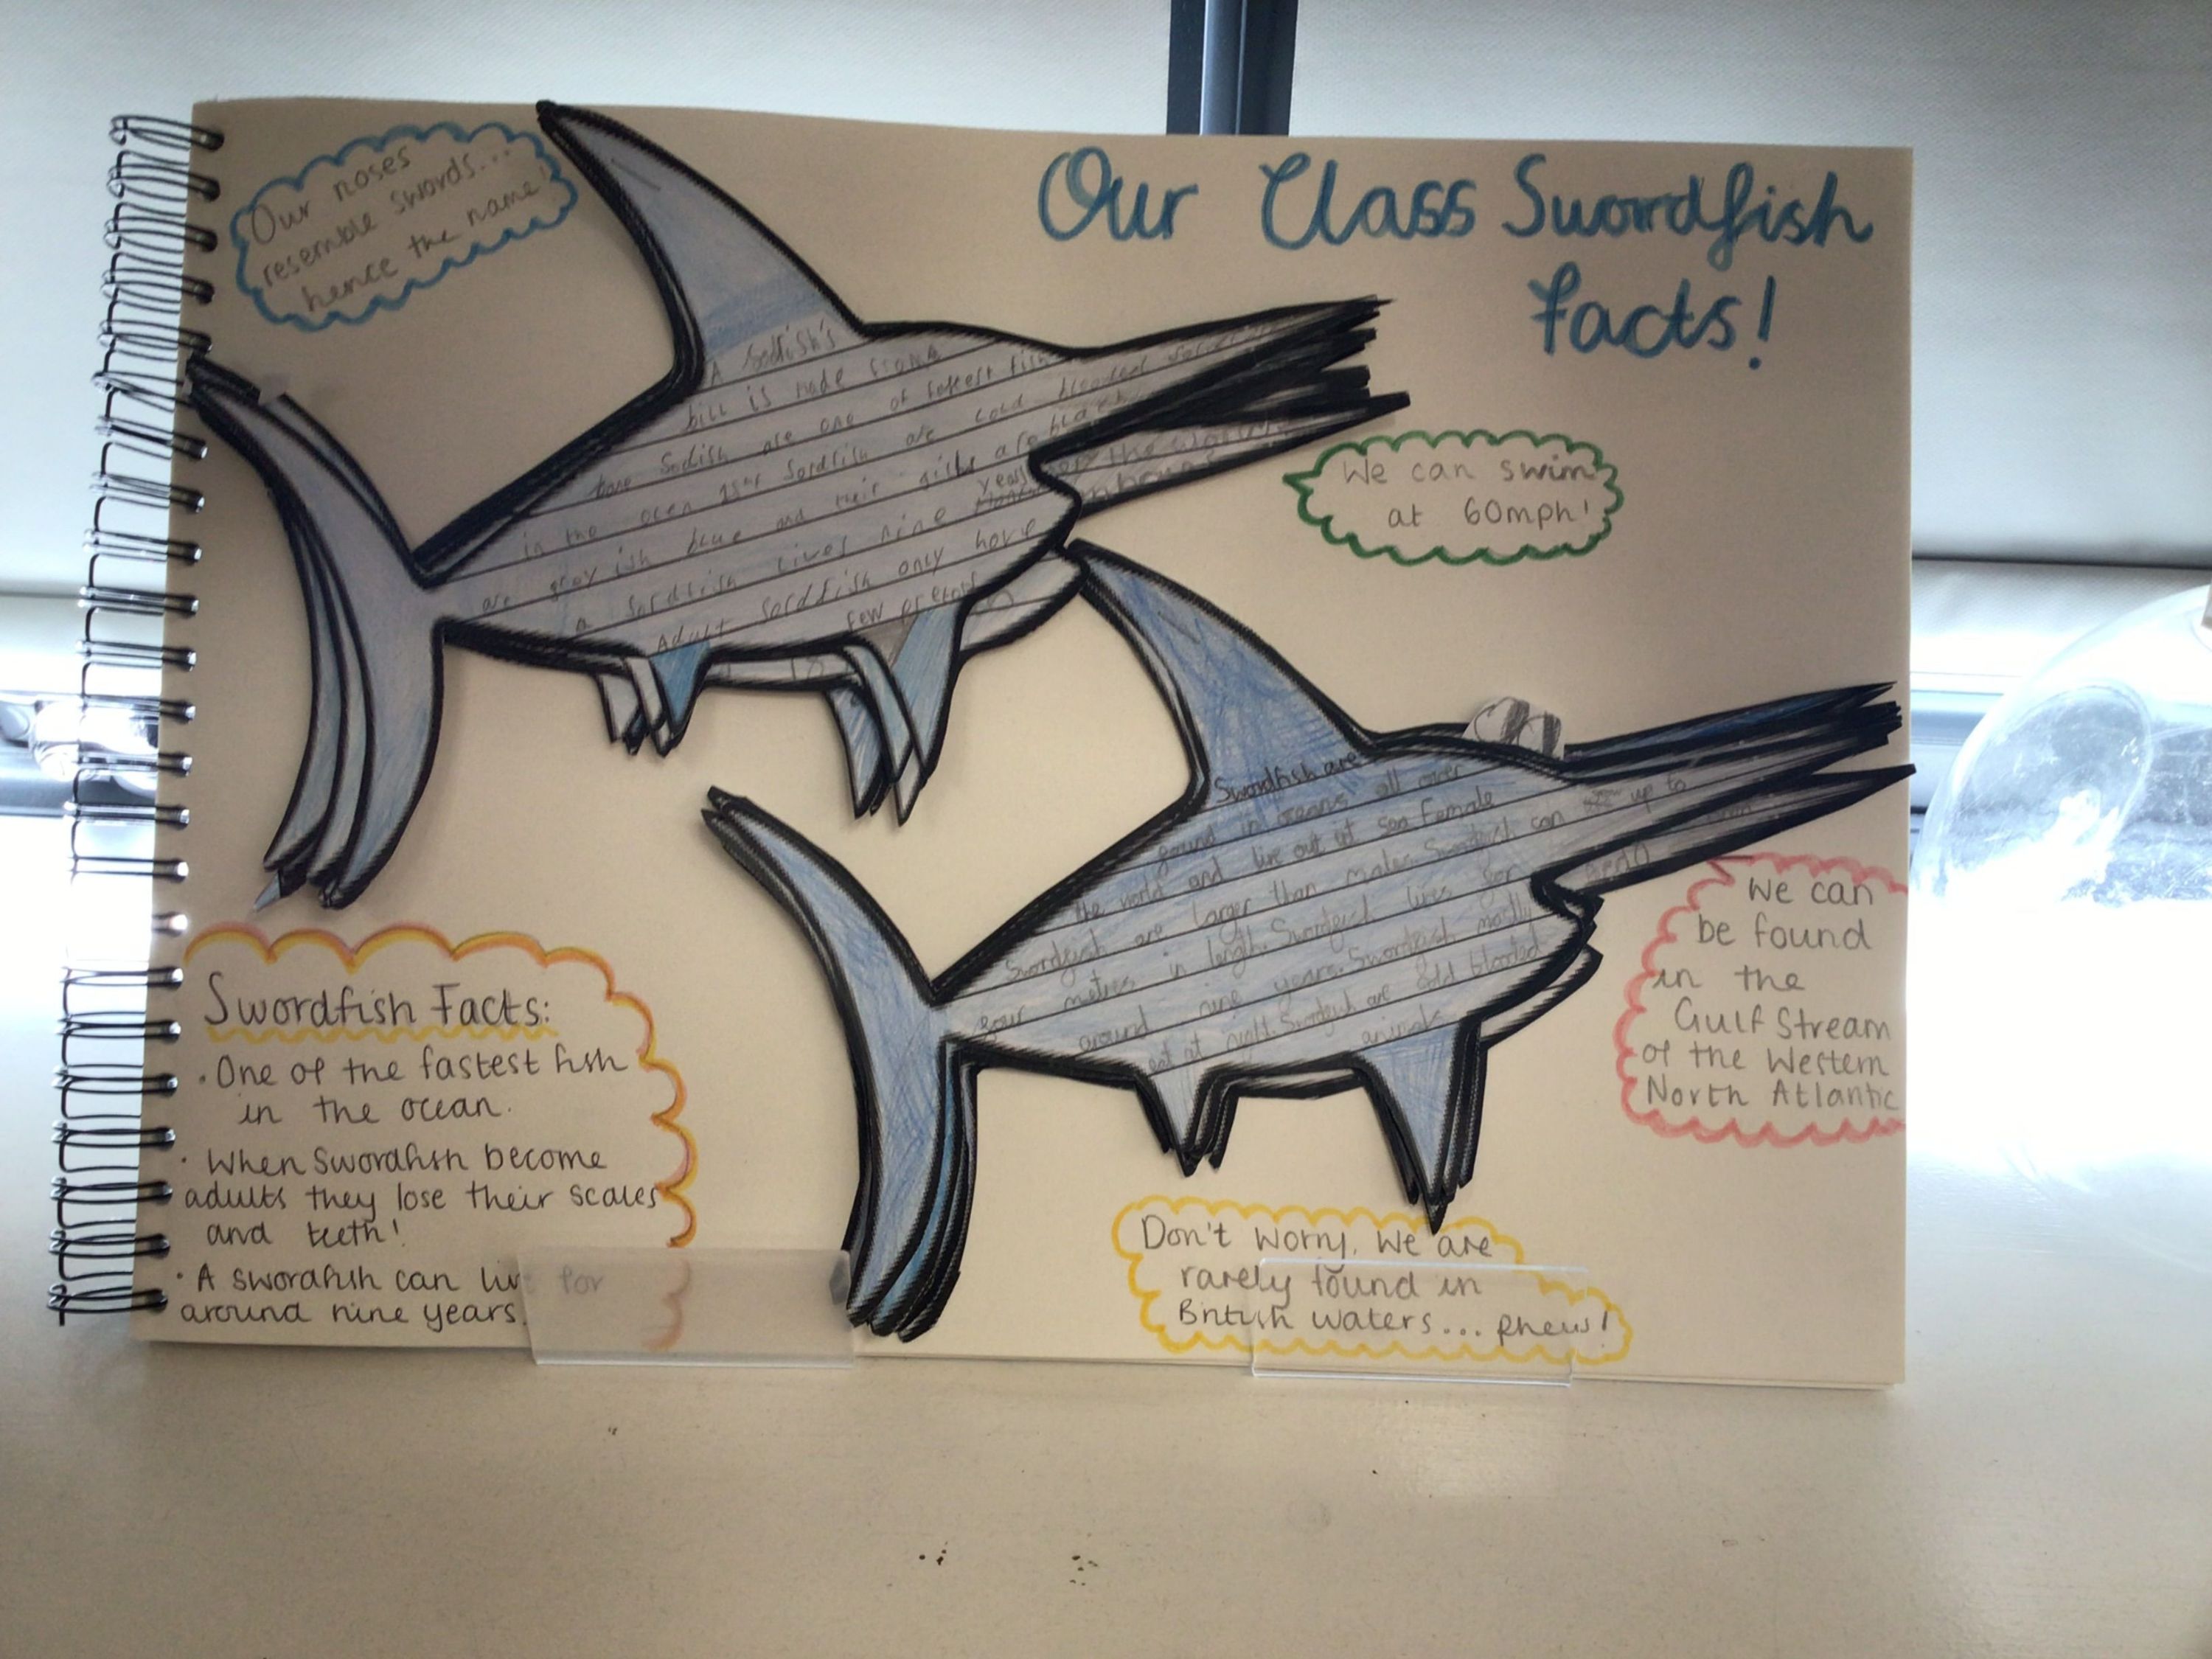 Our Class Swordfish
Facts!
Our noses
resemble swords...
hence the name!
A Sodfish's
bill is made from
bone Sodish are one of fastest fish
in the ocen Sordfish are cold blooded
are grey ish blue and their gills are black
a Sordfish lives nine years
Adult Sordfish only have
few
We can swim
at 60mph!
Swordfish are
found in oceans all over
the world and live out at sea Female
Swordfish are larger than males. Swordfish can up to
four metres in length. Swordfish lives for
around nine years. Swordfish mostly
eat at night. Swordfish are cold blooded
animals
We can
be found
in the
Gulf Stream
of the Western
North Atlantic
Swordfish Facts:
· One of the fastest fish
in the ocean.
· When Swordfish become
adults they lose their scales
and teeth!
· A swordfish can live for
around nine years.
Don't worry, we are
rarely found in
British waters... phew!